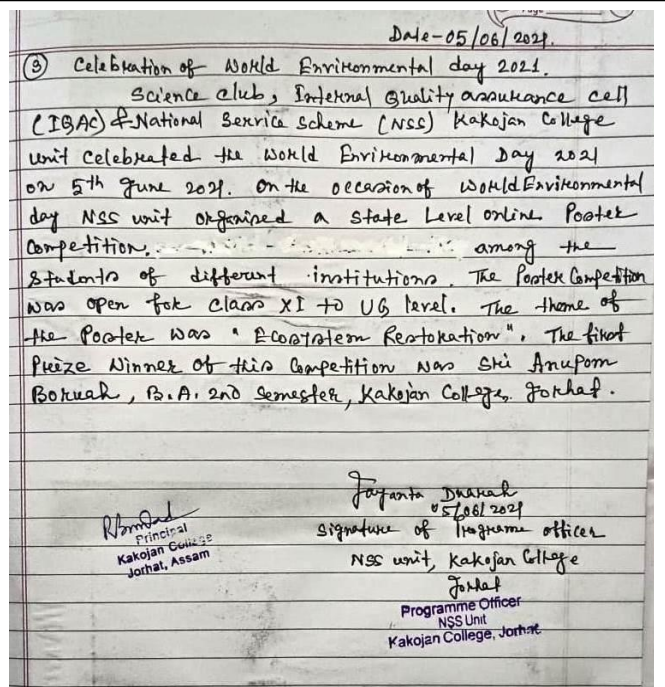 Date-05/06/2021.
③ Celebration of World Environmental day 2021.
Science club, Internal Quality assurance cell
(IQAC) & National Service Scheme (NSS) Kakojan College
unit celebrated the World Environmental Day 2021
on 5th June 2021. On the occasion of World Environmental
day NSS unit organised a State Level online Poster
Competition. among the
Students of different institutions. The Poster Competition
was open for class XI to UG level. The theme of
the Poster was "Ecosystem Restoration". The first
Prize Winner of this Competition was Sri Anupom
Boruah, B.A. 2nd Semester, Kakojan College, Jorhat.
Jayanta Duarah
05/06/2021
Signature of Programme officer
NSS unit, Kakojan College
Jorhat
Programme Officer
NSS Unit
Kakojan College, Jorhat
Principal
Kakojan College
Jorhat, Assam